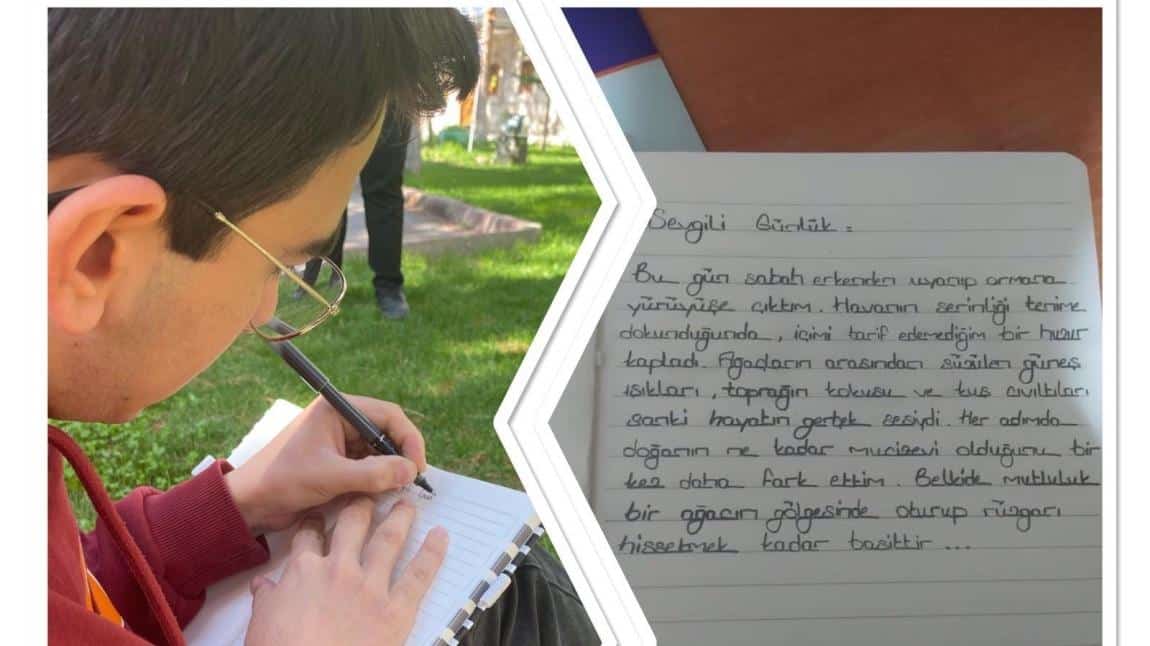 Sevgili Günlük:
Bu gün sabah erkenden uyanıp ormana
yürüyüşe çıktım. Havanın serinliği tenime
dokunduğunda, içimi tarif edemediğim bir huzur
kapladı. Ağaçların arasından süzülen güneş
ışıkları, toprağın kokusu ve kuş cıvıltıları
sanki hayatın gerçek sesiydi. Her adımda
doğanın ne kadar mucizevi olduğunu bir
kez daha fark ettim. Belkide mutluluk
bir ağacın gölgesinde oturup rüzgarı
hissetmek kadar basittir...